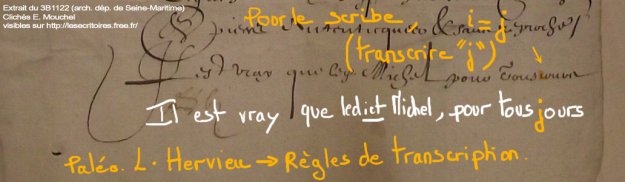 Extrait du 3B1122 (arch. dép. de Seine-Maritime)
Clichés E. Mouchel
visibles sur http://lesecritoires.free.fr/
Pour le scribe, i = j
(transcrire "j")
Il est vray que led Michel pour tous iours
Il est vray que ledict Michel, pour tous jours
Paléo. L. Hervieu → Règles de transcription.